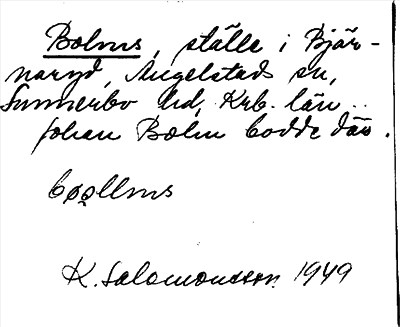 Bolms, ställe i Bjär-
naryd, Angelstads sn,
Sunnerbo hd, Krb. län..
Johan Bolm bodde där.
bǫøllms
K. Salomonsson. 1949